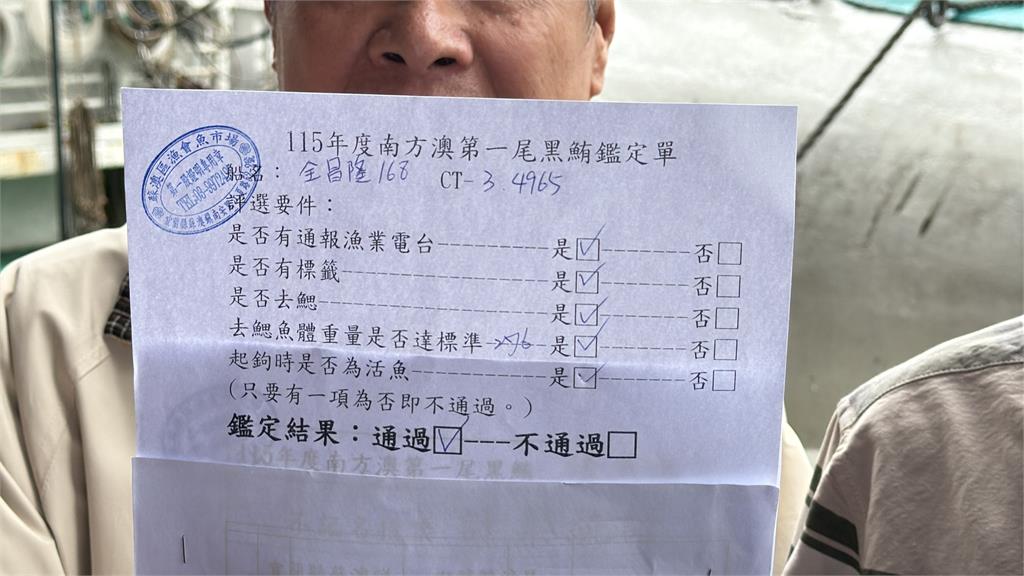 115年度南方澳第一尾黑鮪鑑定單
船名：全昌隆168 CT-3 4965
評選要件：
是否有通報漁業電台----------是☑--------否☐
是否有標籤--------------------是☑--------否☐
是否去鰓----------------------是☑--------否☐
去鰓魚體重量是否達標準-276-是☑--------否☐
起鉤時是否為活魚------------是☑--------否☐
(只要有一項為否即不通過。)
鑑定結果：通過☑---不通過☐
蘇澳區漁會魚市場
115年度南方澳第一尾黑鮪